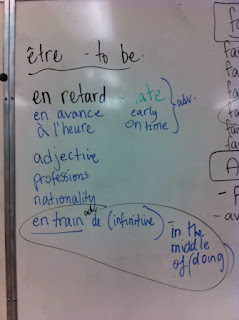 être - to be.
en retard late
en avance early } adv.
à l'heure on time
adjective
professions
nationality
en train de (infinitive) - in the middle of (doing)
fa
fa
fa
fa
fa
fa
A
- f
- av